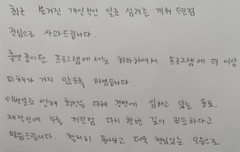 최근 불거진 개인적인 일로 심려를 끼쳐 드린점
진심으로 사과드립니다.
출연 중이던 프로그램에서는 하차하여서 프로그램에 더 이상
피해가 가지 않도록 하겠습니다.
이번일로 인해 최선을 다해 경연에 임하고 있는 동료,
제작진에 누를 끼친점 다시 한번 깊이 죄송하다고
말씀드립니다. 철저히 돌아보고 더욱 책임있는 모습으로